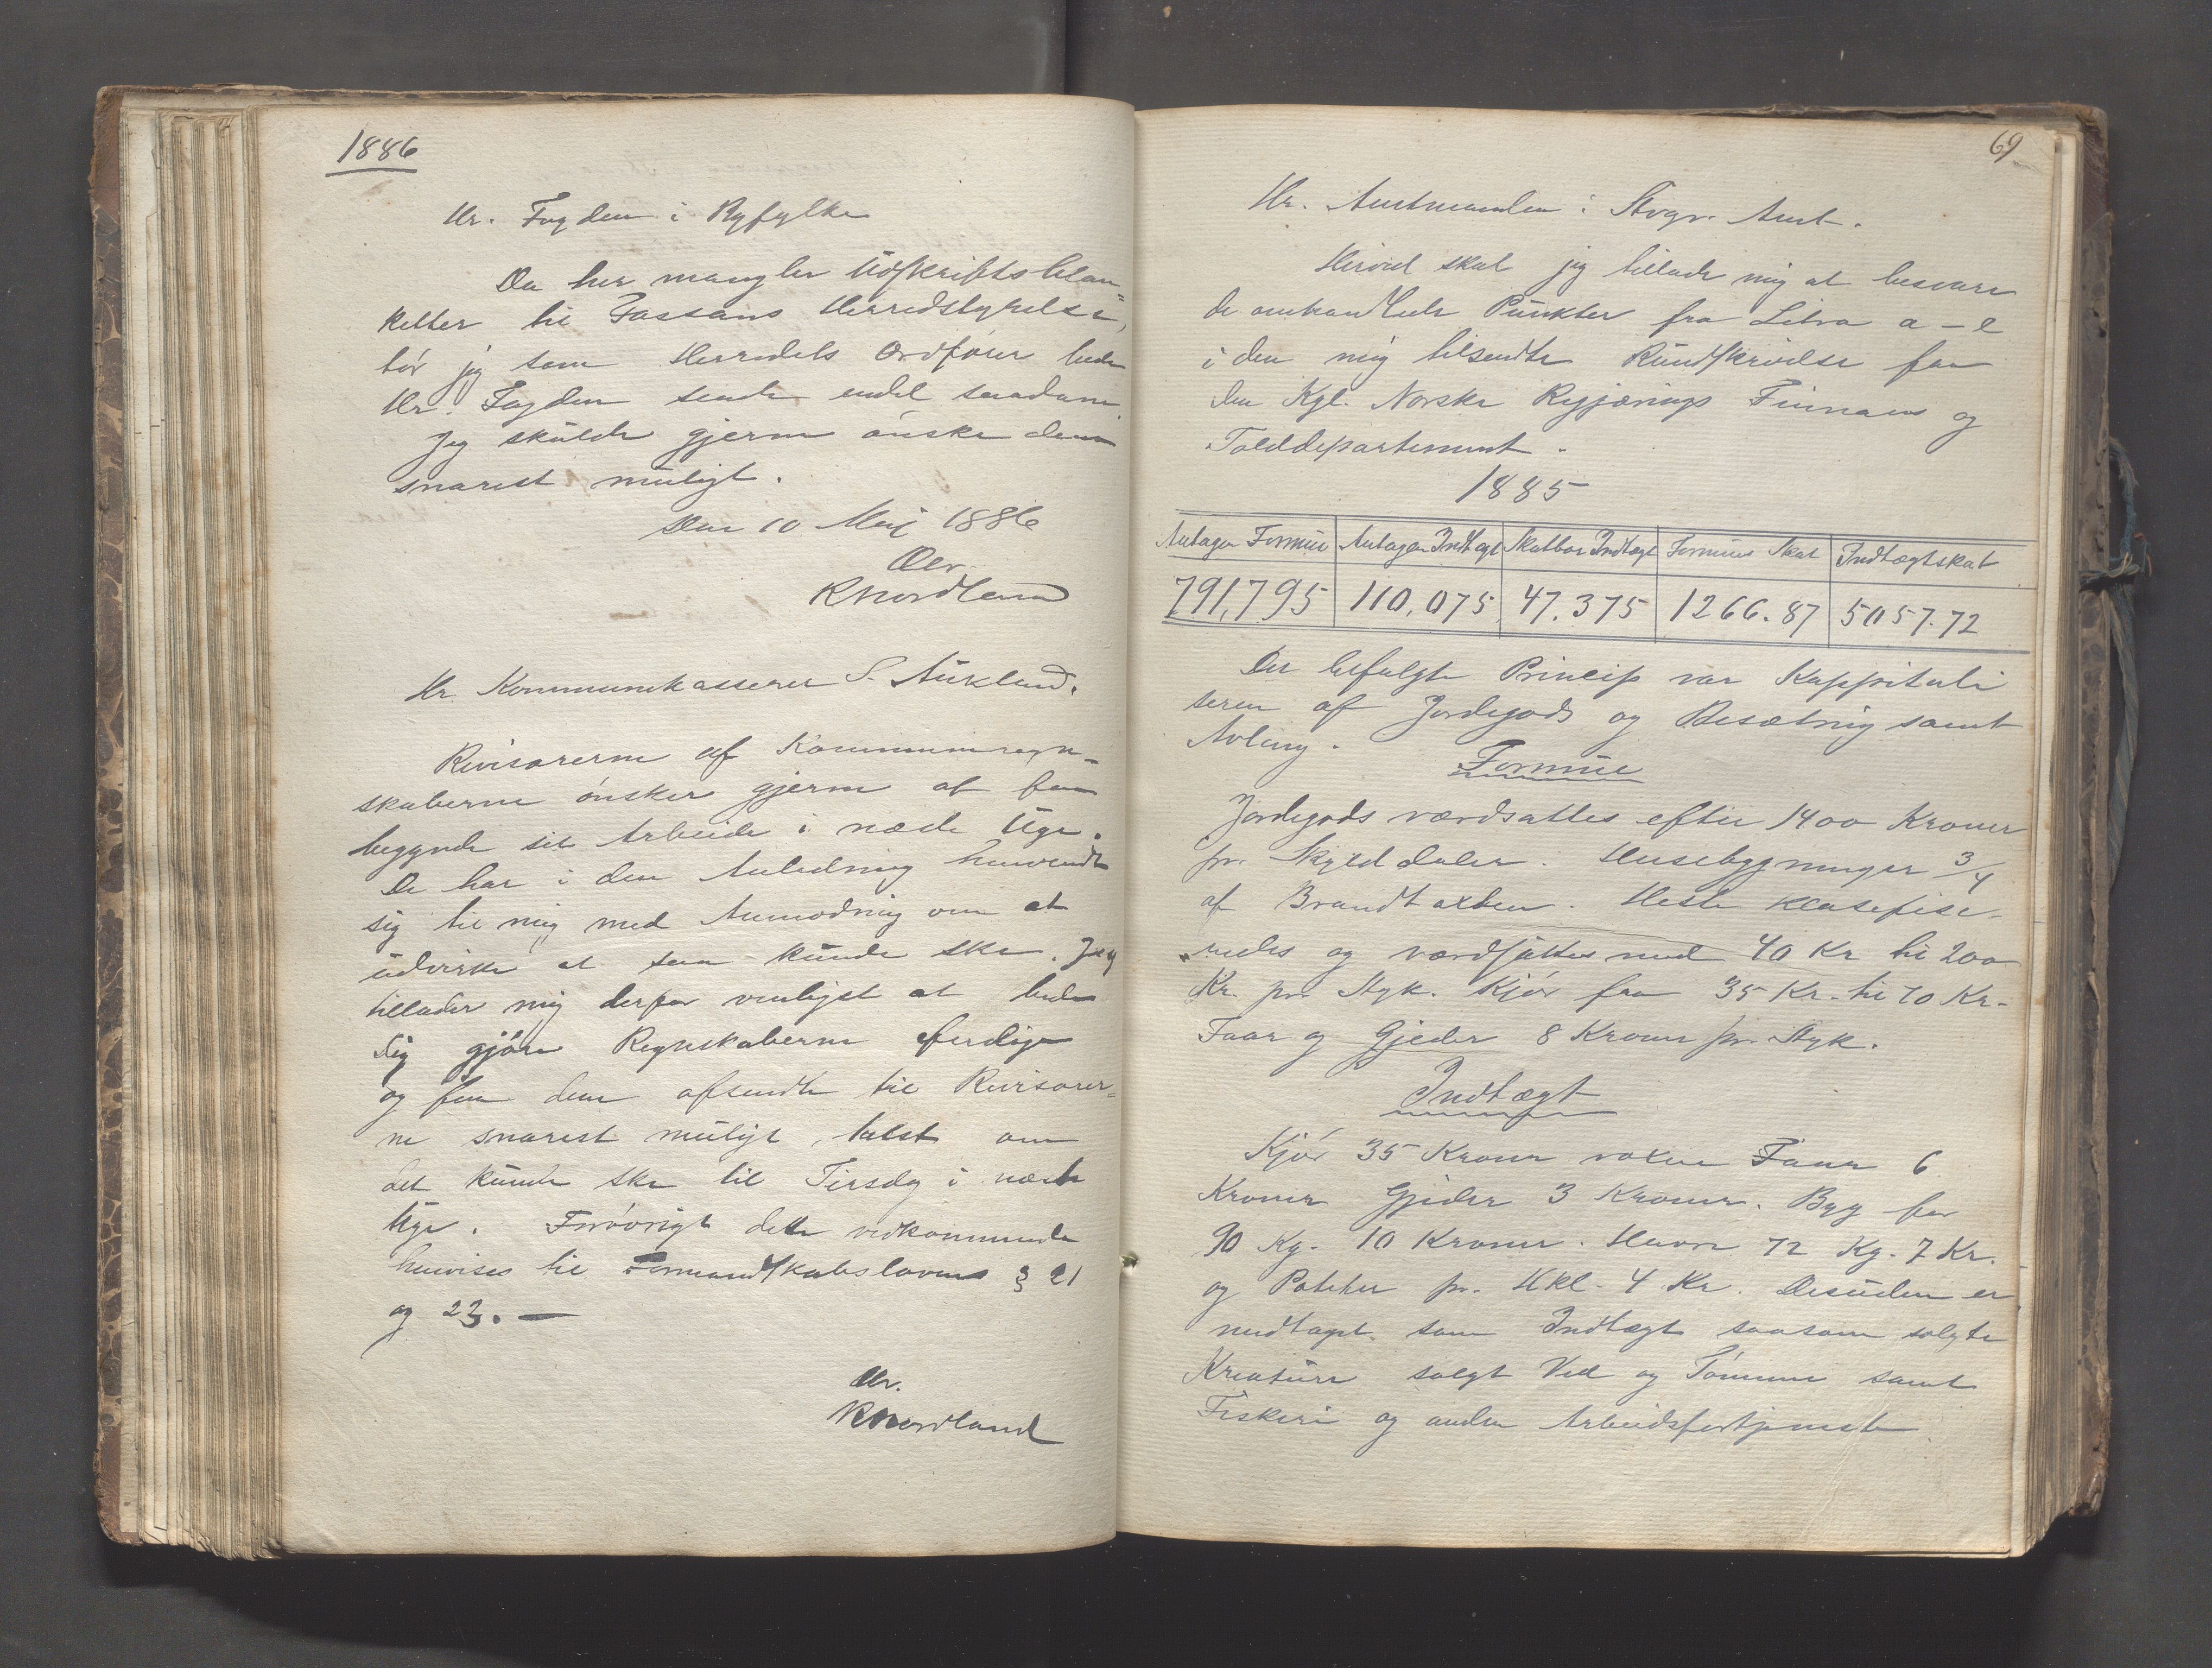 1886
Hr. Fogden i Ryfylke
Da her mangler Udskriftsblan=
ketter til Fossans Herredstyrelse,
tør jeg som Herredets Ordfører bede
Hr. Fogden sende endel saadane.
Jeg skulde gjerne ønske dem
snarest muligt.
den 10 Mai 1886
Ær.
R Nordland
Hr Kommunekasserer S. Aukland.
Revisorerne af Kommuneregn-
skaberne ønsker gjerne at faa
begynde sit Arbeide i næste Uge.
De har i den Anledning henvendt
sig til mig med Anmodning om at
udvirke at saa kunde ske. Jeg
tillader mig derfor venligst at bede
Dig gjøre Regnskaberne ferdige
og faa dem afsendte til Revisorer=
ne snarest muligt, helst om
det kunde ske til Tirsdag i næste
Uge. Forøvrigt dette vedkommende
henvises til Formandskabslovens § 21
og 23. —
Ær.
R Nordland
69
Hr. Amtmanden i Stvgr. Amt.
Hervid skal jeg tillade mig at besvare
de omhandlede Punkter fra Litra a - e
i den mig tilsendte Rundskrivelse fra
den Kgl. Norske Regjærings Finnans og
Tolddepartement.
1885
Antagen Formue Antagen Indtægt Skatbar Indtægt Formues Skat Indtægtskat
791,795 110,075 47.375 1266.87 5057.72
Det befulgte Princip var Kappitali
seren af Jordegods og Besætning samt
Avling.
Formue
Jordegods værdsattes efter 1400 Kroner
pr. Skylddaler. Husebygninger 3/4
af Brandtaxten. Heste klasefise-
redes og værdsattes med 40 Kr til 200
Kr. pr. Styk. Kjør fra 35 Kr. til 70 Kr.
Faar og Gjeder 8 Kroner pr. Styk.
Indtægt
Kjør 35 Kroner voksne Faar 6
Kroner Gjeder 3 Kroner. Byg for
90 Kg. 10 Kroner. Havre 72 Kg. 7 Kr.
og Poteter pr. Hkl. 4 Kr. Desuden er
medtaget som Indtægt saasom solgte
Kreature solgt Ved og Tømmer samt
Fiskeri og anden Arbeidsfortjeneste